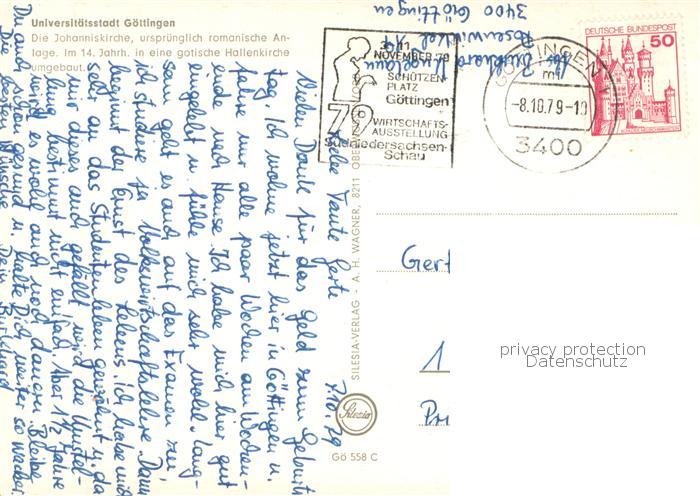 Universitätsstadt Göttingen
Die Johanniskirche, ursprünglich romanische An-
lage. Im 14. Jahrh. in eine gotische Hallenkirche
umgebaut.
7.10.79
Liebe Tante Gerte
Vielen Dank für das Geld zum Geburts
tag. Ich wohne jetzt hier in Göttingen u.
fahre nur alle paar Wochen am Wochen-
ende nach Hause. Ich habe mich hier gut
eingelebt u. fühle mich sehr wohl. Lang-
sam geht es auch auf das Examen zu,
ich studiere ja Volkswirtschaftslehre. Dann
beginnt der Ernst des Lebens, ich habe mich
sehr an das Studentenleben gewöhnt u. da
mir dieses auch gefällt wird die Umstel-
lung bestimmt nicht einfach. Aber 1 1/2 Jahre
wird es wohl auch noch dauern. Bleibe
Du auch schön gesund u. halte Dich weiter so wacker
Die besten Wünsche Dein Burkhard
Burkhard
Rosenwinkel
3400 Göttingen
NOVEMBER 79
SCHÜTZEN-
PLATZ
Göttingen
79 WIRTSCHAFTS-
AUSSTELLUNG
Südniedersachsen-
Schau
GÖTTINGEN 1
mi
-8.10.79-10
3400
DEUTSCHE BUNDESPOST
50
SCHLOSS NEUSCHWANSTEIN
SILESIA-VERLAG - A. H. WAGNER, 8211
Silesia
Gö 558 C
Gert
1
Pri
privacy protection
Datenschutz